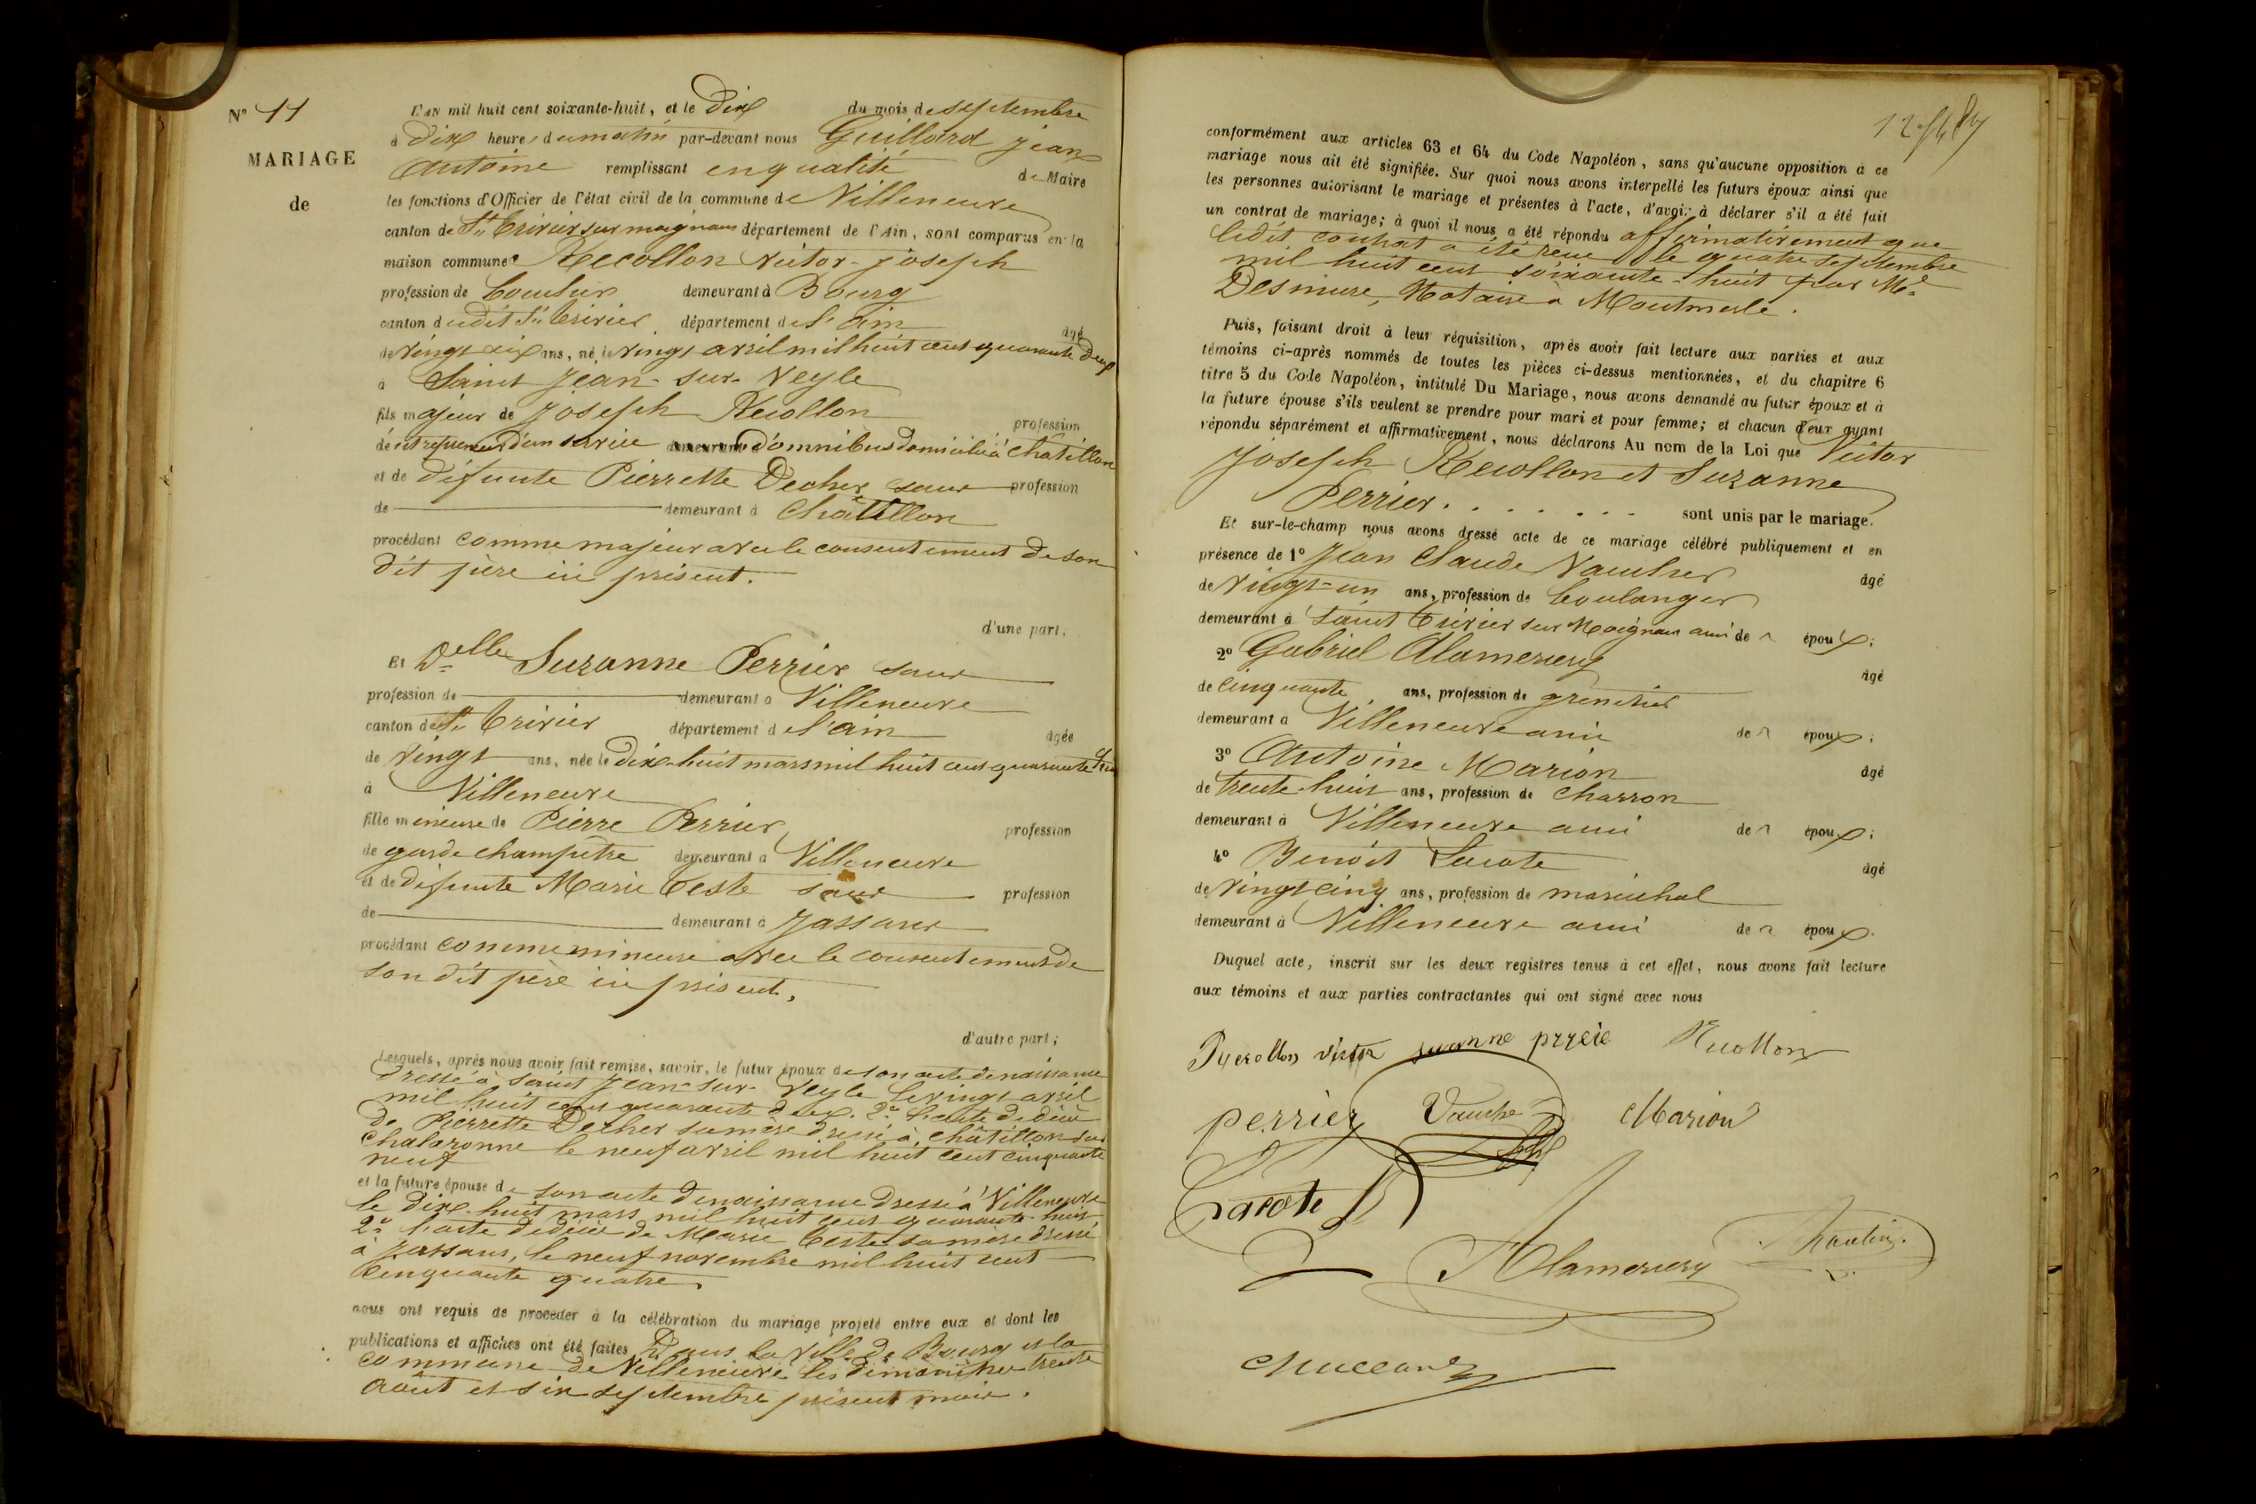 N° 11
MARIAGE
de
L'AN mil huit cent soixante-huit, et le Dix du mois de septembre
à Dix heures du matin par-devant nous Guillard Jean
Antoine remplissant en qualité de Maire
les fonctions d'Officier de l'état civil de la commune de Villeneuve
canton de St Trivier sur moignans département de l'Ain, sont comparus en la
maison commune Recollon Victor-Joseph
profession de demeurant à Bourg
canton dudit St Trivier département de l'ain âgé
de vingt six ans, né le vingt avril mil huit cent quarante deux
à Saint Jean-sur-Veyle
fils majeur de Joseph Recollon profession
d'entrepreneur d'un service d'omnibus domicilié à Châtillon
et de défunte Pierrette Decher sans profession
de demeurant à Châtillon
procédant comme majeur avec le consentement de son
dit père ici présent.
d'une part,
Et Delle Suzanne Perrier sans
profession de demeurant à Villeneuve
canton de St Trivier département de l'ain âgée
de vingt ans, née le Dix-huit mars mil huit cent quarante huit
à Villeneuve
fille mineure de Pierre Perrier profession
de garde champêtre demeurant à Villeneuve
et de défunte Marie Teste sans profession
de demeurant à Jassans
procédant comme mineure avec le consentement de
son dit père ici présent.
d'autre part;
Lesquels, après nous avoir fait remise, savoir, le futur époux de son acte de naissance
dressé à Saint Jean-sur-Veyle le vingt avril
mil huit cent quarante deux. 2° l'acte de décès
de Pierrette Decher sa mère dressé à Châtillon sur
Chalaronne le neuf avril mil huit cent cinquante
neuf
et la future épouse de son acte de naissance dressé à Villeneuve
le Dix-huit mars mil huit cent quarante-huit
2° l'acte de décès de Marie Teste sa mère dressé
à Jassans, le neuf novembre mil huit cent
cinquante quatre.
nous ont requis de procéder à la célébration du mariage projeté entre eux et dont les
publications et affiches ont été faites Dans la ville de Bourg et la
commune de Villeneuve les dimanches trente
août et six septembre présent mois.
conformément aux articles 63 et 64 du Code Napoléon, sans qu'aucune opposition à ce
mariage nous ait été signifiée. Sur quoi nous avons interpellé les futurs époux ainsi que
les personnes autorisant le mariage et présentes à l'acte, d'avoir à déclarer s'il a été fait
un contrat de mariage; à quoi il nous a été répondu affirmativement que
ledit contrat a été reçu le quatre septembre
mil huit cent soixante-huit par Me
Desmure, Notaire à Montmerle.
Puis, faisant droit à leur réquisition, après avoir fait lecture aux parties et aux
témoins ci-après nommés de toutes les pièces ci-dessus mentionnées, et du chapitre 6
titre 5 du Code Napoléon, intitulé Du Mariage, nous avons demandé au futur époux et à
la future épouse s'ils veulent se prendre pour mari et pour femme; et chacun d'eux ayant
répondu séparément et affirmativement, nous déclarons Au nom de la Loi que Victor
Joseph Recollon et Suzanne
Perrier. . . . . . . . sont unis par le mariage.
Et sur-le-champ nous avons dressé acte de ce mariage célébré publiquement et en
présence de 1° Jean Claude Vaucher âgé
de Vingt-un ans, profession de boulanger
demeurant à Saint Trivier sur Moignans ami de époux;
2° Gabriel Alamercery âgé
de cinquante ans, profession de
demeurant à Villeneuve ami de époux;
3° Antoine Marion âgé
de trente huit ans, profession de charron
demeurant à Villeneuve ami de époux;
4° Benoit Lacote âgé
de vingt cinq ans, profession de maréchal
demeurant à Villeneuve ami de époux.
Duquel acte, inscrit sur les deux registres tenus à cet effet, nous avons fait lecture
aux témoins et aux parties contractantes qui ont signé avec nous
victor Recollon
perrier Vauche Marion
Lacote
Alamercery